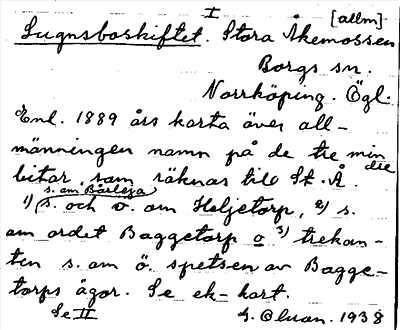 I [allm]
Sugnsboskiftet. Stora Åkemossen
Borgs sn.
Norrköping. Ögl.
Enl. 1889 års karta över all-
männingen namn på de tre mindre
bitar, som räknas till St. Å.
s. om Bårleza
1) (s. och v. om Heljetorp, 2) s.
om ordet Baggetorp o 3) trekan-
ten s. om ö. spetsen av Bagge-
torps ägor. Se ek-kart.
Se II G. 1938